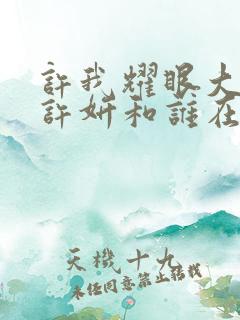 許我耀眼大
許妍和誰在
天機十九
未經同意禁止轉載